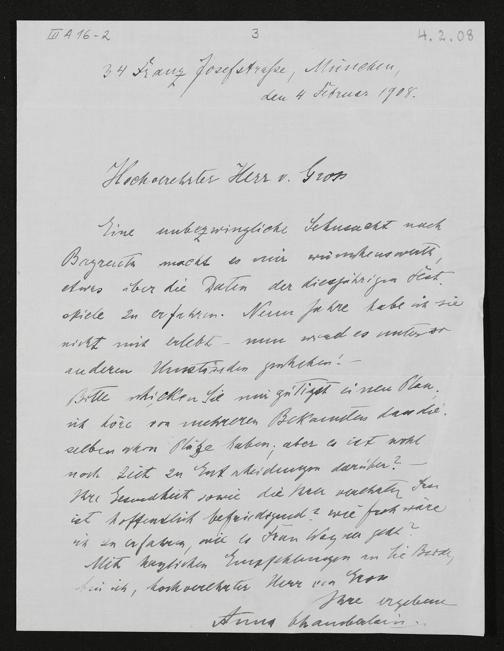 III A 16-2 3 4.2.08
34 Franz Josefstraße, München,
den 4 Februar 1908.
Hochverehrter Herr v. Gross
Eine unbezwingliche Sehnsucht nach
Bayreuth macht es mir wünschenswerth,
etwas über die Daten der diesjährigen Fest-
spiele zu erfahren. Neun Jahre habe ich sie
nicht mit erlebt – nun wird es unter so
anderen Umständen geschehen! –
Bitte schicken Sie mir gütigst einen Plan.
ich höre von mehreren Bekannten dass die-
selben schon Plätze haben; aber es ist wohl
noch Zeit zu Entscheidungen darüber? –
Ihre Gesundheit sowie die Ihrer verehrten Frau
ist hoffentlich befriedigend? wie froh wäre
ich zu erfahren, wie es Frau Wagner geht?
Mit herzlichen Empfehlungen an Sie Beide,
bin ich, hochverehrter Herr von Gross
Ihre ergebene
Anna Chamberlain.